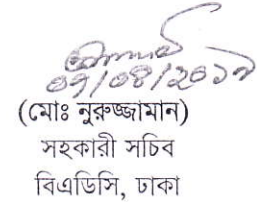 ০৭/০৮/২০১৭
(মোঃ নুরুজ্জামান)
সহকারী সচিব
বিএডিসি, ঢাকা